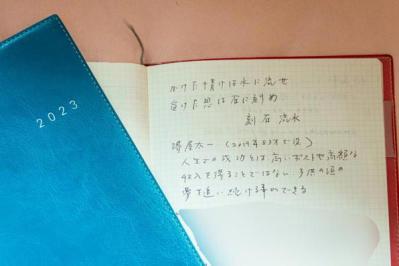 2023
かけた情けは水に流せ
受けた恩は石に刻め
刻石流水
堺屋太一（2019年83才で没）
人生での成功とは高いポストや高額な
収入を得ることではない 子供の頃の
夢を追い続ける事ができる